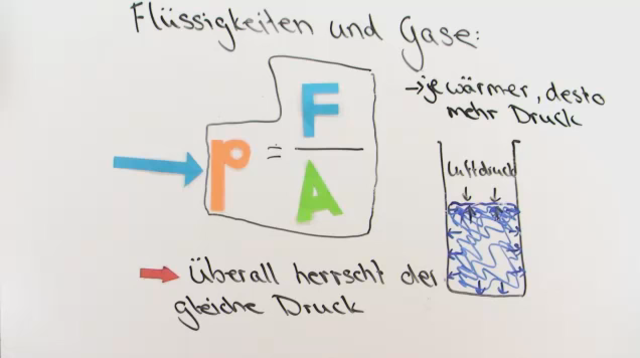 Flüssigkeiten und Gase:
→ je wärmer, desto
mehr Druck
p = F
A
Luftdruck
Überall herrscht der
gleiche Druck